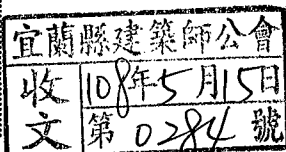 宜蘭縣建築師公會
收文
108年5月15日
第0284號